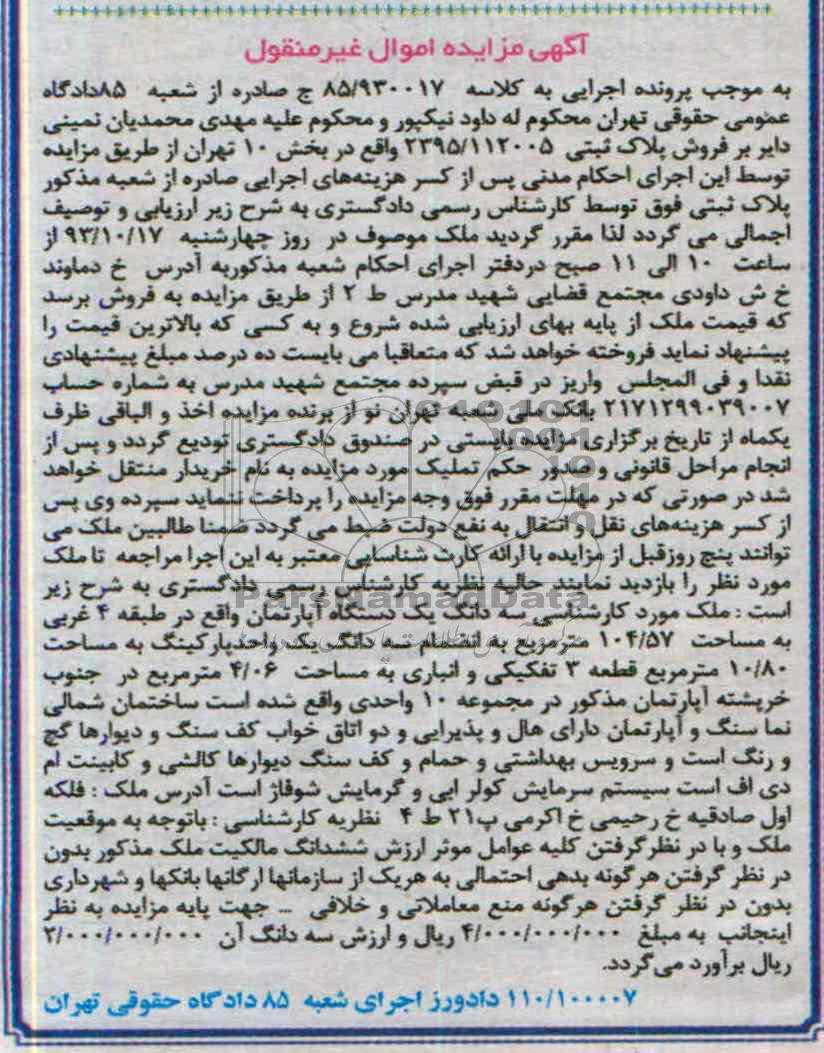 آگهی مزایده اموال غیرمنقول
به موجب پرونده اجرایی به کلاسه ۸۵/۹۳۰۰۱۷ ج صادره از شعبه ۸۵دادگاه
عمومی حقوقی تهران محکوم له داود نیکپور و محکوم علیه مهدی محمدیان نمینی
دایر بر فروش پلاک ثبتی ۲۳۹۵/۱۱۲۰۰۵ واقع در بخش ۱۰ تهران از طریق مزایده
توسط این اجرای احکام مدنی پس از کسر هزینه‌های اجرایی صادره از شعبه مذکور
پلاک ثبتی فوق توسط کارشناس رسمی دادگستری به شرح زیر ارزیابی و توصیف
اجمالی می گردد لذا مقرر گردید ملک موصوف در روز چهارشنبه ۹۳/۱۰/۱۷ از
ساعت ۱۰ الی ۱۱ صبح دردفتر اجرای احکام شعبه مذکوربه آدرس خ دماوند
خ ش داودی مجتمع قضایی شهید مدرس ط ۲ از طریق مزایده به فروش برسد
که قیمت ملک از پایه بهای ارزیابی شده شروع و به کسی که بالاترین قیمت را
پیشنهاد نماید فروخته خواهد شد که متعاقبا می بایست ده درصد مبلغ پیشنهادی
نقدا و فی المجلس واریز در قبض سپرده مجتمع شهید مدرس به شماره حساب
۲۱۷۱۲۹۹۰۳۹۰۰۷ بانک ملی شعبه تهران نو از برنده مزایده اخذ و الباقی ظرف
یکماه از تاریخ برگزاری مزایده بایستی در صندوق دادگستری تودیع گردد و پس از
انجام مراحل قانونی و صدور حکم تملیک مورد مزایده به نام خریدار منتقل خواهد
شد در صورتی که در مهلت مقرر فوق وجه مزایده را پرداخت ننماید سپرده وی پس
از کسر هزینه‌های نقل و انتقال به نفع دولت ضبط می گردد ضمنا طالبین ملک می
توانند پنج روزقبل از مزایده با ارائه کارت شناسایی معتبر به این اجرا مراجعه تا ملک
مورد نظر را بازدید نمایند حالیه نظریه کارشناس رسمی دادگستری به شرح زیر
ParsNamadData
است : ملک مورد کارشناسی سه دانگ یک دستگاه آپارتمان واقع در طبقه ۴ غربی
به مساحت ۱۰۴/۵۷ مترمربع به انضمام سه دانگ یک واحدپارکینگ به مساحت
۱۰/۸۰ مترمربع قطعه ۳ تفکیکی و انباری به مساحت ۴/۰۶ مترمربع در جنوب
خرپشته آپارتمان مذکور در مجموعه ۱۰ واحدی واقع شده است ساختمان شمالی
نما سنگ و آپارتمان دارای هال و پذیرایی و دو اتاق خواب کف سنگ و دیوارها گچ
و رنگ است و سرویس بهداشتی و حمام و کف سنگ دیوارها کالشی و کابینت ام
دی اف است سیستم سرمایش کولر ابی و گرمایش شوفاژ است آدرس ملک : فلکه
اول صادقیه خ رحیمی خ اکرمی پ۲۱ ط ۴ نظریه کارشناسی : باتوجه به موقعیت
ملک و با در نظرگرفتن کلیه عوامل موثر ارزش ششدانگ مالکیت ملک مذکور بدون
در نظر گرفتن هرگونه بدهی احتمالی به هریک از سازمانها ارگانها بانکها و شهرداری
بدون در نظر گرفتن هرگونه منع معاملاتی و خلافی ... جهت پایه مزایده به نظر
اینجانب به مبلغ ۴/۰۰۰/۰۰۰/۰۰۰ ریال و ارزش سه دانگ آن ۲/۰۰۰/۰۰۰/۰۰۰
ریال برآورد می‌گردد.
۱۱۰/۱۰۰۰۰۷ دادورز اجرای شعبه ۸۵ دادگاه حقوقی تهران